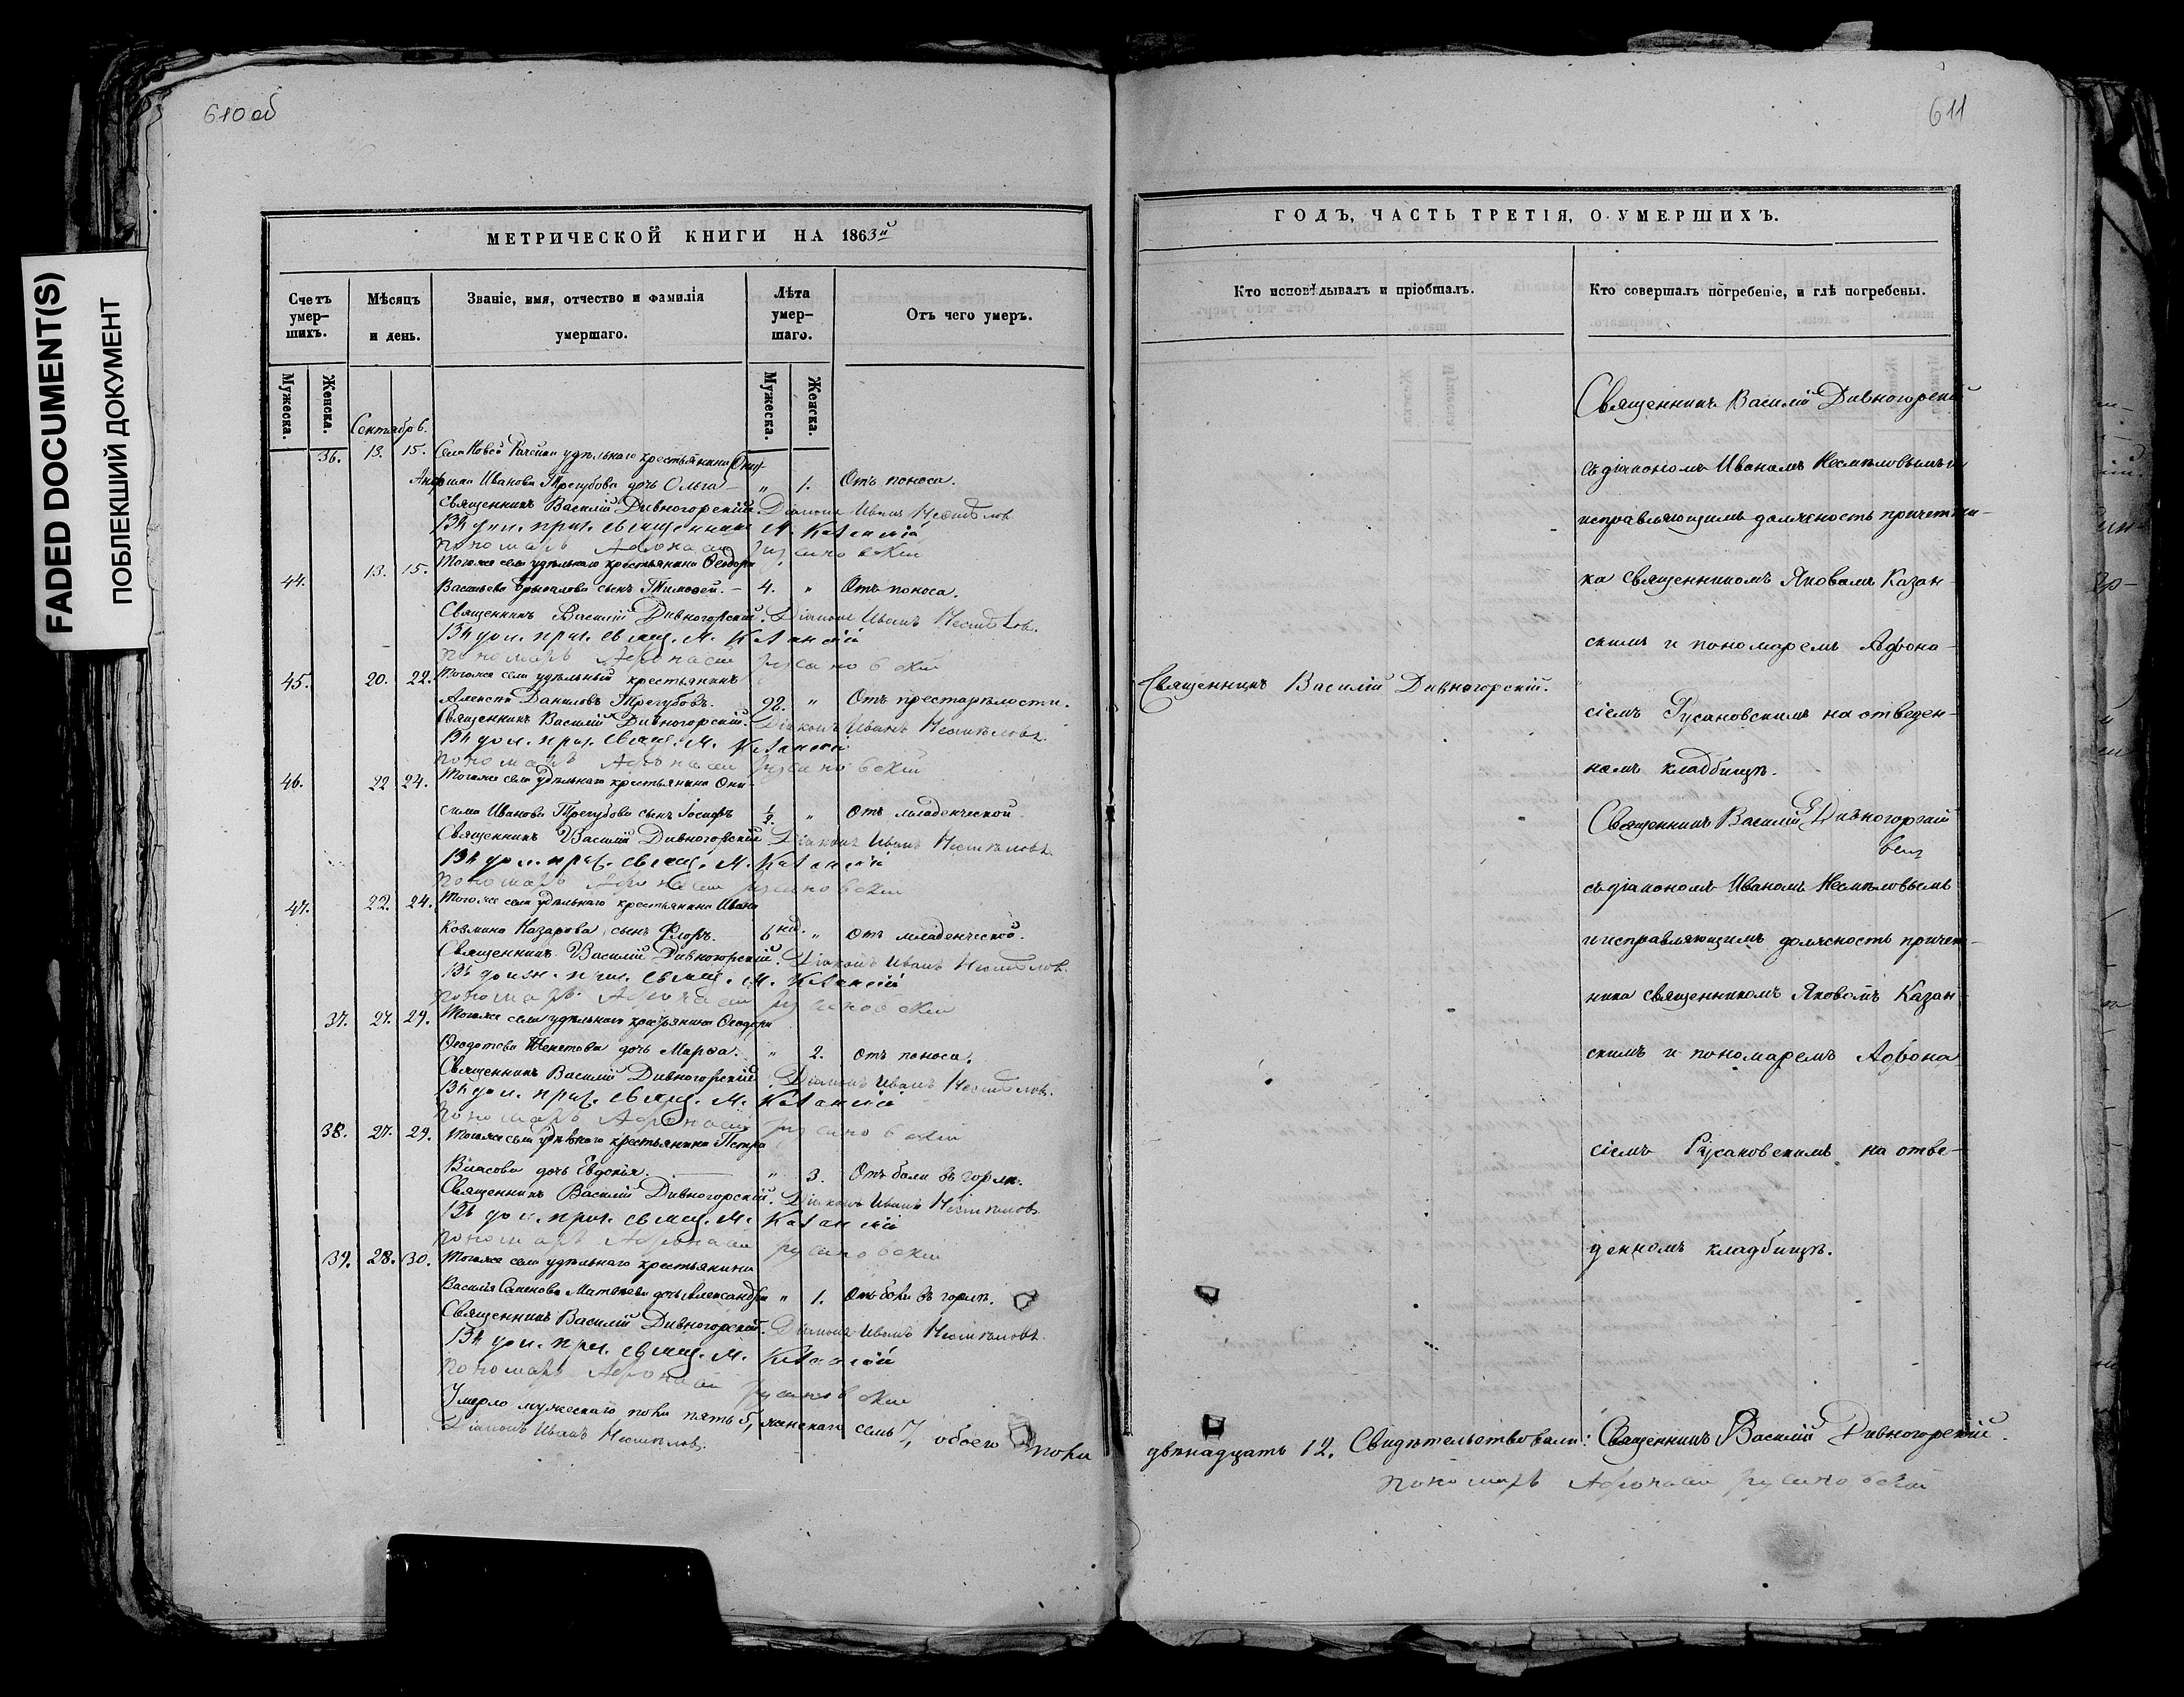 FADED DOCUMENT(S)
ПОБЛЕКШИЙ ДОКУМЕНТ
610 об
МЕТРИЧЕСКОЙ КНИГИ НА 1863й
Счетъ умер-шихъ.
Мѣсяцъ и день.
Званіе, имя, отчество и фамилія умершаго.
Лѣта умер-шаго.
Отъ чего умеръ.
Мужеска.
Женска.
Мужеска.
Женска.
Сентябрь.
36. 13. 15. Села Новой Рачейки удѣльнаго крестьянина
Иванова Трегубова дочь Ольга – „ 1. Отъ поноса.
Священникъ Василій Дивногорскій. Діаконъ Иванъ Несмѣловъ
священникъ Казанскій
пономарь Афонасій Русановскій
44. 13. 15. Тогоже села удѣльнаго крестьянина Ѳеодора
Васильева сынъ Тимоѳей. – 4. „ Отъ поноса.
Священникъ Василій Дивногорскій. Діаконъ Иванъ Несмѣловъ.
Въ дол. прич. свящ. Казанскій
пономарь Афонасій Русановскій
45. 20. 22. Тогоже села удѣльный крестьянинъ
Алексѣй Даниловъ Трегубовъ. 92. „ Отъ престарѣлости.
Священникъ Василій Дивногорскій. Діаконъ Иванъ Несмѣловъ.
Въ дол. прич. свящ. Казанскій
пономарь Афонасій Русановскій
46. 22 24. Тогоже села удѣльнаго крестьянина Они-
сима Иванова Трегубова сынъ Іосифъ 1/2. „ Отъ младенческой.
Священникъ Василій Дивногорскій Діаконъ Иванъ Несмѣловъ
Въ дол. прич. свящ. Казанскій
пономарь Афонасій Русановскій
47. 22. 24. Тогоже села удѣльнаго крестьянина Ивана
Козмина Назарова, сынъ Флоръ. 6 нед. „ Отъ младенческой.
Священникъ Василій Дивногорскій. Діаконъ Иванъ Несмѣловъ.
Въ должн. прич. свящ. Казанскій
пономарь Афонасій Русановскій
37. 27. 29. Тогоже села удѣльнаго крестьянина Ѳеодора
Ѳеодотова дочь Марѳа. „ 2. отъ поноса.
Священникъ Василій Дивногорскій. Діаконъ Иванъ Несмѣловъ.
Въ дол. прич. свящ. Казанскій
пономарь Афонасій Русановскій
38. 27. 29. Тогоже села удѣльнаго крестьянина Петра
Власова дочь Евдокія. „ 3. Отъ боли въ горлѣ.
Священникъ Василій Дивногорскій. Діаконъ Иванъ Несмѣловъ
Въ дол. прич. свящ. Казанскій
пономарь Афонасій Русановскій
39. 28. 30. Тогоже села удѣльнаго крестьянина
Василія Семенова дочь Александра „ 1. Отъ боли въ горлѣ.
Священникъ Василій Дивногорскій. Діаконъ Иванъ Несмѣловъ.
Въ дол. прич. свящ. Казанскій
пономарь Афонасій Русановскій
Умерло мужескаго пола пять 5, женскаго семь 7, обоего пола
Діаконъ Иванъ Несмѣловъ.
611
ГОДЪ, ЧАСТЬ ТРЕТІЯ, О УМЕРШИХЪ.
Кто исповѣдывалъ и пріобщалъ.
Кто совершалъ погребеніе, и гдѣ погребены.
Священникъ Василій Дивногорскій.
Священникъ Василій Дивногорскій
съ діакономъ Иваномъ Несмѣловымъ и
исправляющимъ должность причетни-
ка священникомъ Яковомъ Казан-
скимъ и пономаремъ Афона-
сіемъ Русановскимъ на отведен-
номъ кладбищѣ.
Священникъ Василій Дивногорскій
съ діакономъ Иваномъ Несмѣловымъ
и исправляющимъ должность причет-
ника священникомъ Яковомъ Казан-
скимъ и пономаремъ Афона-
сіемъ Русановскимъ на отве-
денномъ кладбищѣ.
двѣнадцать 12. Свидѣтельствовали: Священникъ Василій Дивногорскій.
пономарь Афонасій Русановскій